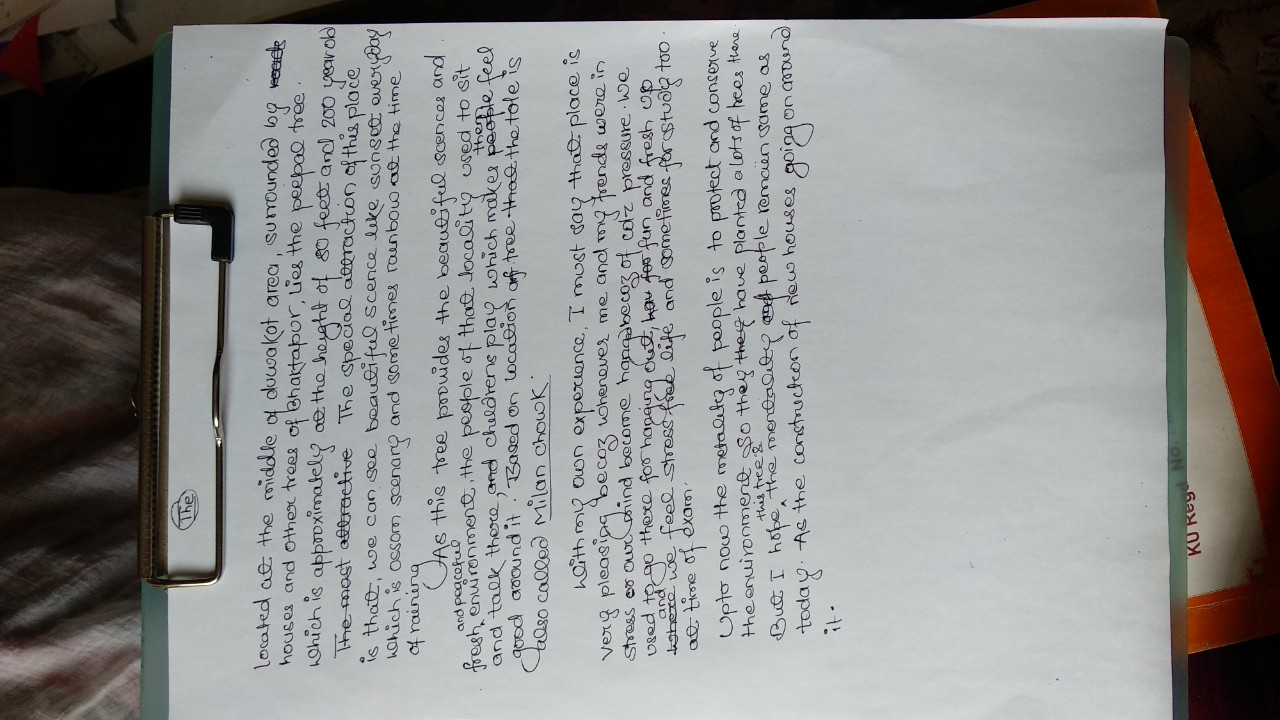 The
Located at the middle of duwakot area, surrounded by
houses and other trees of Bhaktapur, lies the peepal tree.
which is approximately at the height of 80 feet and 200 year old
The most attractive The special attraction of this place
is that, we can see beautiful scence like sunset everyday
which is assom scenary and sometimes rainbow at the time
of raining
As this tree provides the beautiful scences and
fresh and peaceful environment, the people of that locality used to sit
and talk there, and childrens play which makes people them feel
good around it. Based on location of tree that the tole is
also called Milan chowk.
With my own experience, I must say that place is
very pleasing becoz whenever me and my frends were in
stress or our mind become hang becoz of coz pressure. We
used to go there for hanging out, for fun and fresh up
where and we feel stress free life and sometimes for study too.
at time of exam.
Upto now the metality of people is to protect and conserve
the environment. So they they have planted a lots of trees there
But I hope this tree & the mentality and people remain same as
today. As the construction of new houses going on around
it.
KU Regd
No